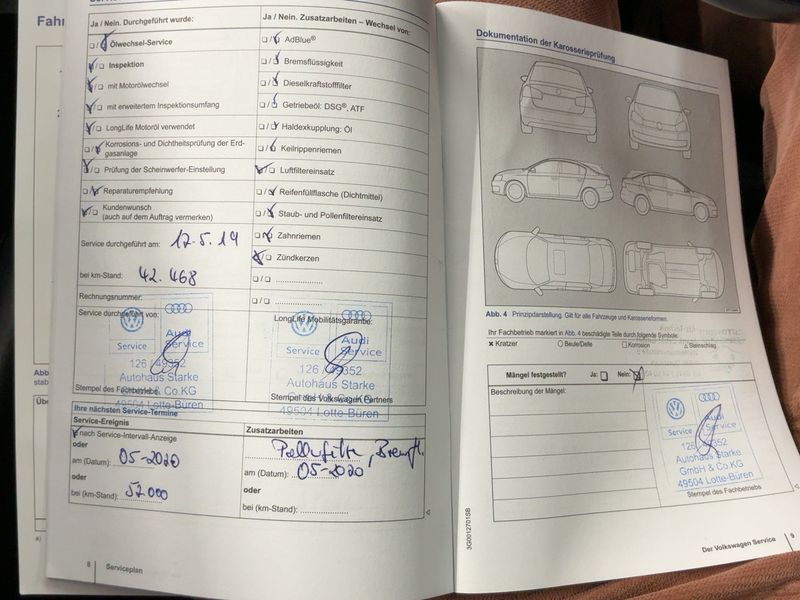 Fahr
Ja / Nein. Durchgeführt wurde:
Ölwechsel-Service
Inspektion
mit Motorölwechsel
mit erweitertem Inspektionsumfang
LongLife Motoröl verwendet
Korrosions- und Dichtheitsprüfung der Erd-
gasanlage
Prüfung der Scheinwerfer-Einstellung
Reparaturempfehlung
Kundenwunsch
(auch auf dem Auftrag vermerken)
Service durchgeführt am: 17.5.19
bei km-Stand: 42.468
Rechnungsnummer:
Service durchgeführt von:
Service
Audi
Service
126 / 49352
Autohaus Starke
& Co.KG
49504 Lotte-Büren
Stempel des Fachbetriebs
Ja / Nein. Zusatzarbeiten – Wechsel von:
AdBlue®
Bremsflüssigkeit
Dieselkraftstofffilter
Getriebeöl: DSG®, ATF
Haldexkupplung: Öl
Keilrippenriemen
Luftfiltereinsatz
Reifenfüllflasche (Dichtmittel)
Staub- und Pollenfiltereinsatz
Zahnriemen
Zündkerzen
LongLife Mobilitätsgarantie:
Service
Audi
Service
126 / 49352
Autohaus Starke
49504 Lotte-Büren
Stempel des Volkswagen Partners
Ihre nächsten Service-Termine
Service-Ereignis
nach Service-Intervall-Anzeige
oder
am (Datum): 05-2020
oder
bei (km-Stand): 52000
Zusatzarbeiten
am (Datum): 05-2020
oder
bei (km-Stand):
8 Serviceplan
Dokumentation der Karosserieprüfung
Abb. 4 Prinzipdarstellung. Gilt für alle Fahrzeuge und Karosserieformen.
Ihr Fachbetrieb markiert in Abb. 4 beschädigte Teile durch folgende Symbole:
× Kratzer ○ Beule/Delle □ Korrosion △ Steinschlag
Mängel festgestellt? Ja: Nein:
Beschreibung der Mängel:
Service
Audi
Service
Autohaus Starke
GmbH & Co.KG
49504 Lotte-Büren
Stempel des Fachbetriebs
3G0012701SB
Der Volkswagen Service 9